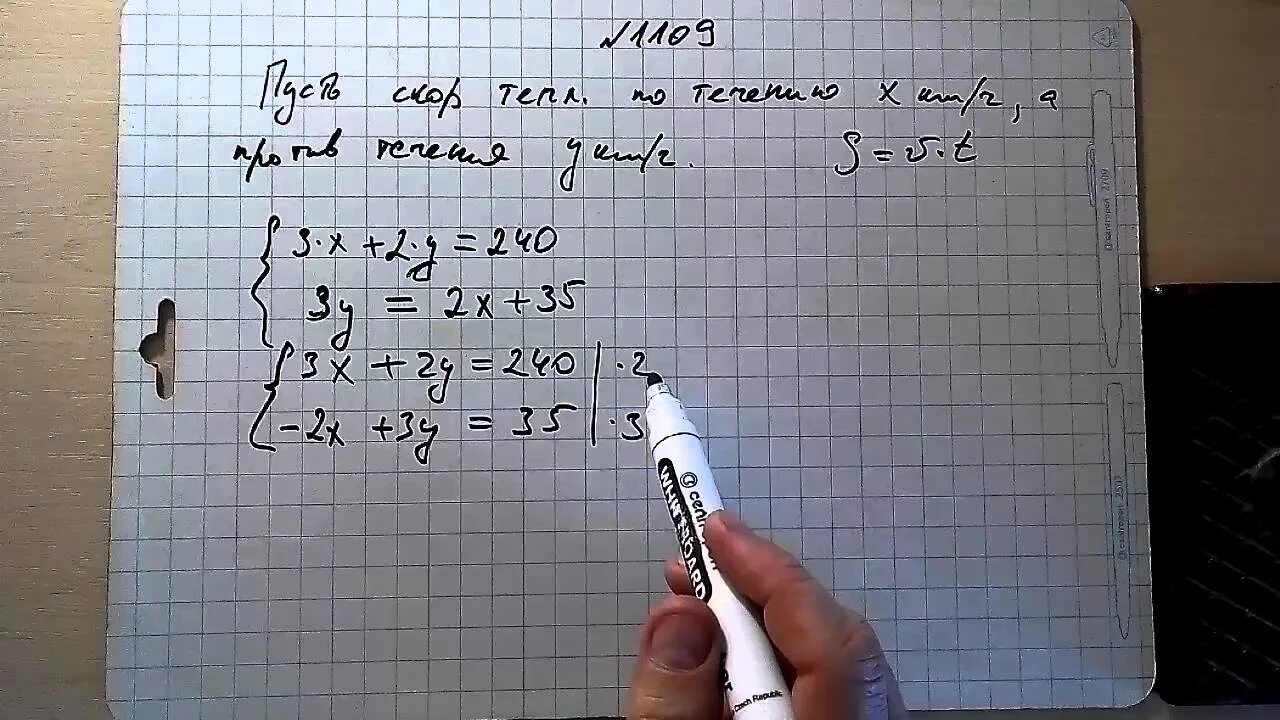 №1109
Пусть скор тепл. по течению x км/ч, а
против течения y км/ч. S = v·t
3·x + 2·y = 240
3y = 2x + 35
3x + 2y = 240 | ·2
-2x + 3y = 35 | ·3
centropen
WHITEBOARD
Czech Republic